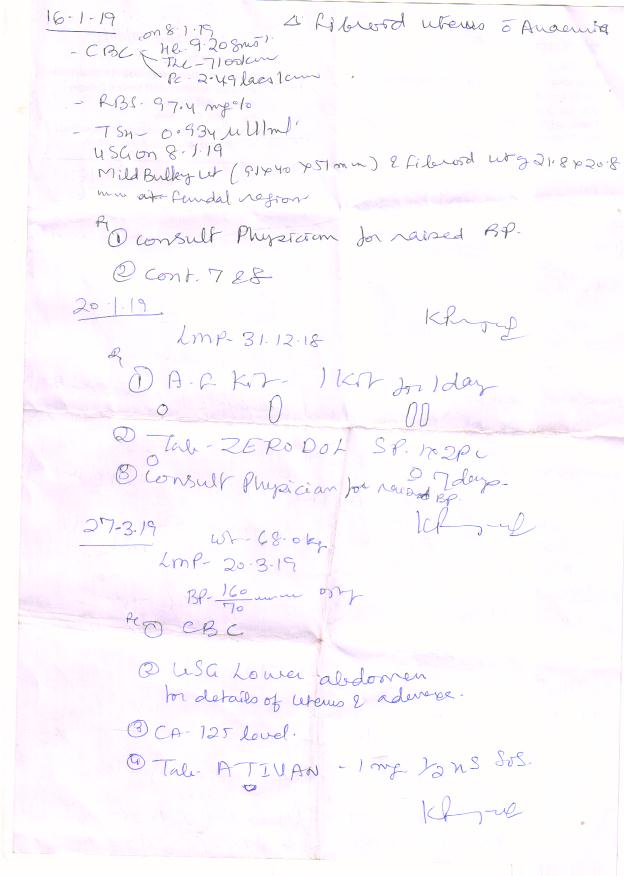 16-1-19
Δ Fibroid uterus c̄ Anaemia
on 8.1.19
- CBC Hb. 9.20 gms%
TLC - 7100/cmm
PC - 2.49 lacs/cmm
- RBS. 97.4 mg%
- TSH - 0.934 µUI/ml
USG on 8.1.19
Mild Bulky ut (91x40x51mm) & fibroid 21.8x20.8
mm at fundal region
Rx
① consult Physician for raised BP.
② Cont. 7 & 8
20.1.19
LMP- 31.12.18
Rx
① A.F Kit - 1 Kit for 1 day
② Tab- ZERODOL SP. 1x2PC
7 days-
③ Consult Physician for raised BP.
27-3-19
wt- 68.0 kg
LMP- 20-3-19
BP- 160/70 mm
Rx ① CBC
② USG Lower abdomen
for details of uterus & adenexa.
③ CA-125 level.
④ Tab- ATIVAN - 1mg 1/2 HS SOS.